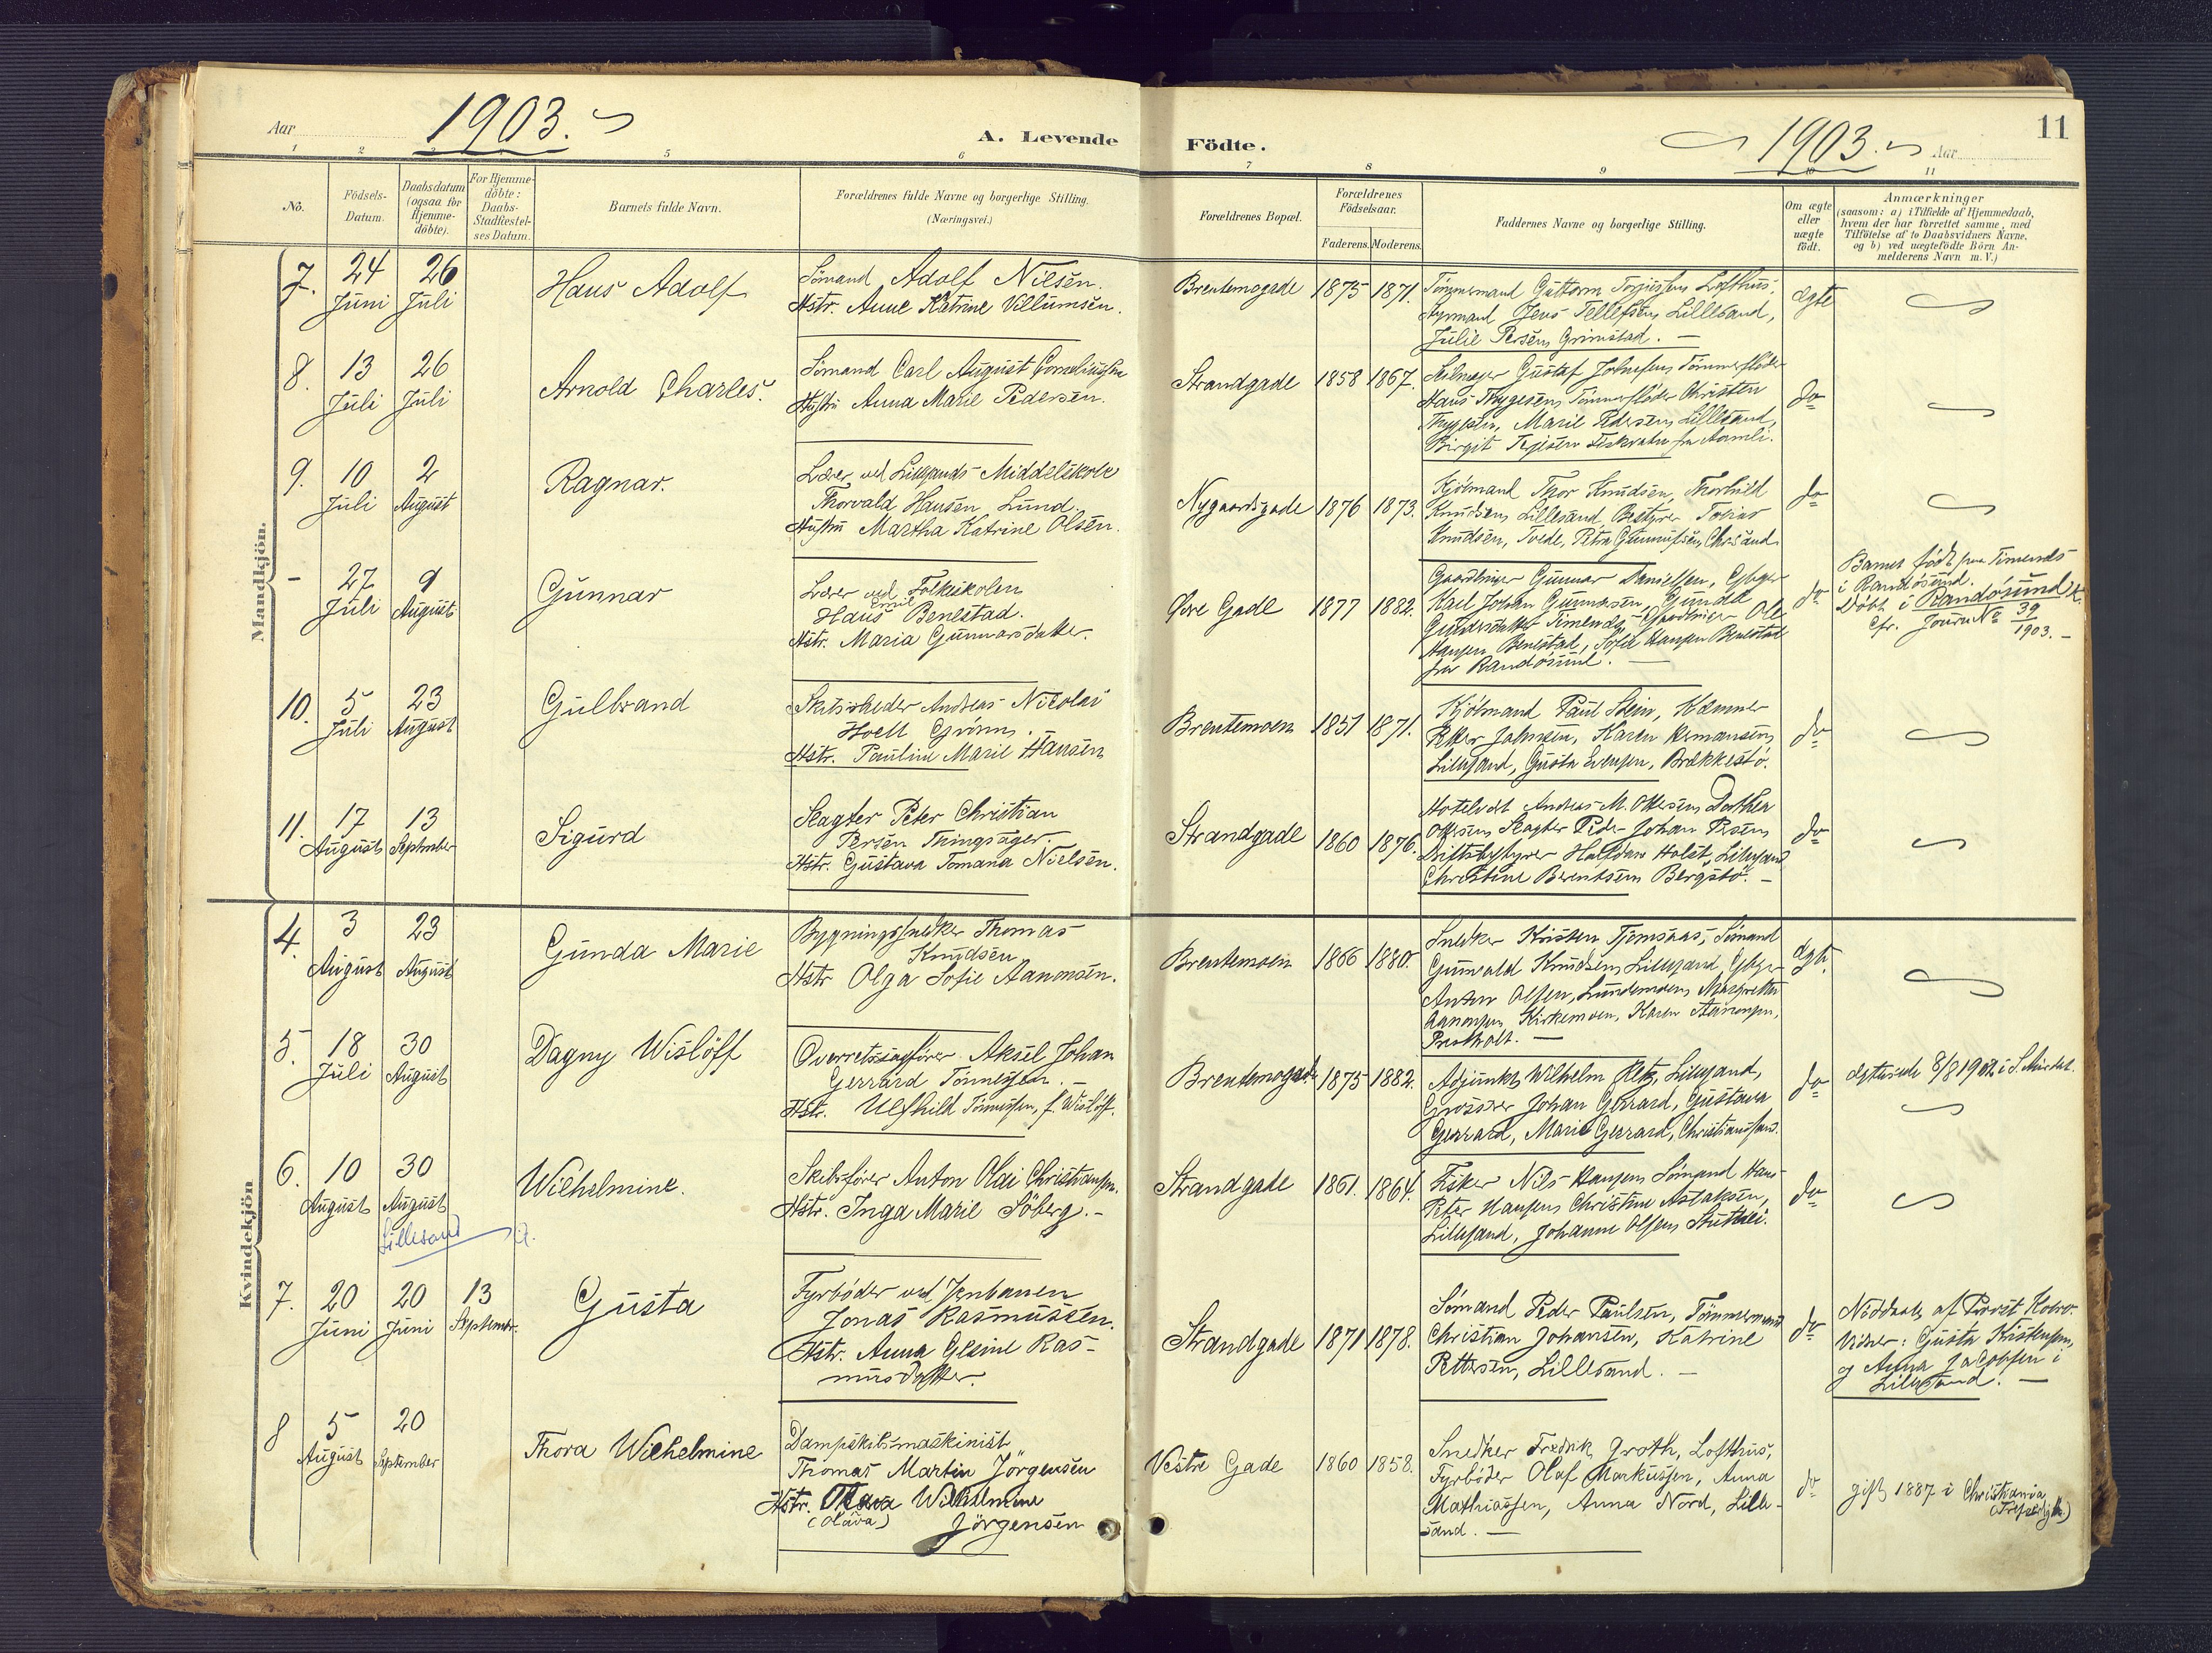 Aar 1903.
A. Levende Födte.
1903. Aar
11
1 2 3 5 6 7 8 9 10 11
No.
Födsels-
Datum.
Daabsdatum
(ogsaa for
Hjemme-
döbte).
For Hjemme-
döbte:
Daabs-
Stadfæstel-
ses Datum.
Barnets fulde Navn.
Forældrenes fulde Navne og borgerlige Stilling.
(Næringsvei.)
Forældrenes Bopæl.
Forældrenes
Födselsaar.
Faderens. Moderens.
Faddernes Navne og borgerlige Stilling.
Om ægte
eller
uægte
födt.
Anmærkninger
(saasom: a) i Tilfælde af Hjemmedaab,
hvem der har forrettet samme, med
Tilföielse af to Daabsvidners Navne,
og b) ved uægtefödte Börn An-
melderens Navn m. V.)
Mandkjön.
7. 24 Juni 26 Juli
Hans Adolf
Sömand Adolf Nilsen.
Hstr. Anne Katrine Villumsen.
Brentemogade 1875 1871.
Tömmermand Guttorm Torjussen Lofthus,
Styrmand Jens Tellefsen Lillesand,
Julie Persen Grimstad.
ægte
8. 13 Juli 26 Juli
Arnold Charles.
Sömand Carl August Corneliussen
Hustru Anna Marie Pedersen.
Strandgade 1858 1867.
Seilmager Gustaf Johnsen, Tömmerflöder
Hans Thygesen, Tömmerflöder Christen
Thygesen, Marie Pedersen Lillesand,
Birgit fra Aamli.
do
9. 10 Juli 2 August
Ragnar.
Lærer ved Lillesands Middelskole
Thorvald Hansen Lund.
Hustru Martha Katrine Olsen.
Nygaardsgade 1876 1873.
Kjöbmand Thor Knudsen, Thorhild
Knudsen Lillesand, Bestyrer Tobias
Knudsen, Tvede, Petra Gunnufsen, Chrsand
do
- 27 Juli 9 August
Gunnar
Lærer ved Folkeskolen
Hans Emil Benestad.
Hstr. Maria Gunnarsdatter.
Øvre Gade 1877 1882.
Gaardbruger Gunnar Danielsen, Gbger
Karl Johan Gunnarsen, Gunda
Gundersdatter Timenes, Gaardbruger Ole
Hansen Benestad, Sofie Hansen Benestad
fra Randösund.
do
Barnet födt paa Timenes
i Randösund.
Döbt i Randösund K.
cfr. Journ No 39/1903.
10. 5 Juli 23 August
Gulbrand
Skibsreder Andreas Nicolai
Hoell Grönn.
Hstr. Pauline Marie Hansen
Brentemoen 1851 1871.
Kjöbmand Paul Stein, Kæmner
Peter Johnsen, Karen Hermansen
Lillesand, Gusta Evensen, Brækkestö.
do
11. 17 August 13 September
Sigurd
Slagter Peter Christian
Persen Thingsager.
Hstr. Gustava Tomana Nielsen.
Strandgade 1860 1876.
Hotelvert Andreas M. Ottesen, Dorthea
Ottesen, Slagter Peder Johan Persen,
Driftsbestyrer Halfdan Holst, Lillesand
Christine Berentsen Bergstö.
do
Kvindekjön
4. 3 August 23 August
Gunda Marie
Bygningssnedker Thomas
Knudsen
Hstr Olga Sofie Aanonsen.
Brentemoen 1866 1880.
Snedker Kristen Tjomsaas, Sömand
Gunvald Knudsen Lillesand, Gbger
Anton Olsen, Lundemoen, Margrethe
Aanonsen Kirkemoen, Karen Aanonsen,
Prestholt.
ægte.
5. 18 Juli 30 August
Dagny Wislöff
Overretssagförer Aksel Johan
Gerrard Tönnessen.
Hstr. Ulfhild Tönnessen, f. Wislöff.
Brentemogade 1875 1882.
Adjunkt Wilhelm Lillesand,
Grosserer Johan Gerrard, Gustava
Gerrard, Marie Gerrard, Christianssand.
do
Ægteviede 8/8 1902 i
6. 10 August 30 August
Wilhelmine.
Skibsförer Anton Olai Christiansen.
Hstr. Inga Marie Söberg.
Strandgade 1861. 1864.
Fisker Nils Hansen, Sömand Hans
Peter Hansen, Christine Aslaksen,
Lillesand, Johanne Olsen
do
Lillesand
7. 20 Juni 20 Juni 13 September
Gusta
Fyrböder ved Jernbanen
Jonas Rasmussen.
Hstr. Anna Gesine Ras-
musdatter.
Strandgade 1871 1878.
Sömand Peder Paulsen, Tömmermand
Christian Johansen, Katrine
Pettersen, Lillesand.
do
Nöddaab af Provst
Vidner: Gusta Kristensen,
og Anna Jacobsen i
Lillesand.
8 5 August 20 September
Thora Wilhelmine
Dampskibsmaskinist
Thomas Martin Jörgensen
Hstr. Olava Wilhelmine
(Olava) Jörgensen
Vestre Gade 1860 1858.
Snedker Fredrik Groth, Lofthus,
Fyrböder Olaf Markussen, Anna
Mathiassen, Anna Nord, Lille-
sand.
do
gift 1887 i Christiania